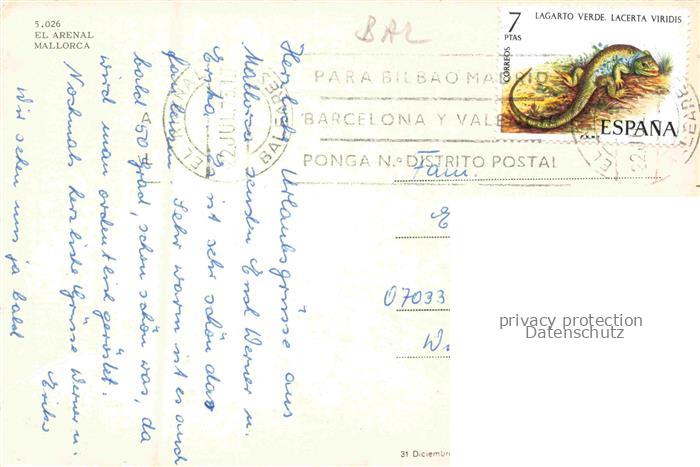 5.026
EL ARENAL
MALLORCA
BAL
7
PTAS
LAGARTO VERDE. LACERTA VIRIDIS
CORREOS
ESPAÑA
PARA BILBAO MADRID
BARCELONA Y VALENCIA
PONGA N.º DISTRITO POSTAL
BALEARES
Herzliche Urlaubsgrüsse aus
Mallorca senden Euch Werner u.
Erika. Es ist sehr schön das
faulenzen. Sehr warm ist es auch
bald 50 grad, schon schön was, da
wird man ordentlich geröstet.
Nochmals herzliche Grüsse Werner u.
Erika
Wir sehen uns ja bald
Fam.
E
07033
W
31 Diciembre
privacy protection
Datenschutz